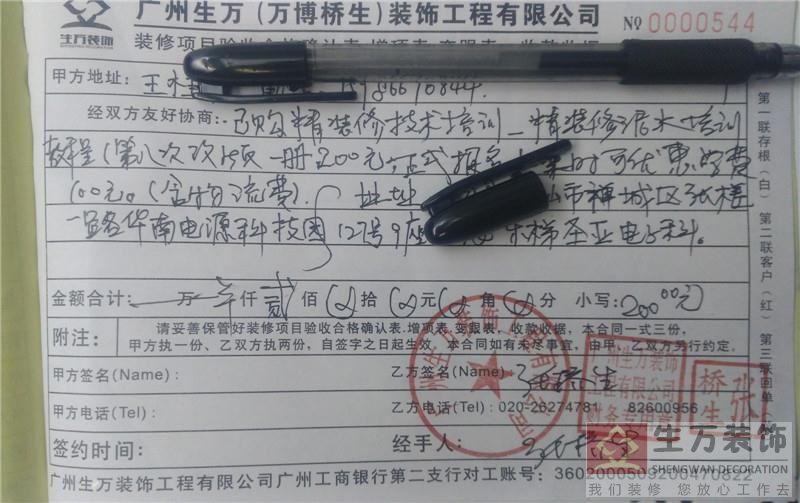 生万装饰
广州生万(万博桥生)装饰工程有限公司
№ 0000544
甲方地址：王
经双方友好协商：已购精装修技术培训_精装修泥水培训
教程(第八次改版一册200元.正式报名 可优惠学费
100元。(含物流费). 地址 山市禅城区张槎
一路华南电源科技园127号9座 木梯圣亚电子科.
金额合计： 万 仟 贰 佰 拾 元 角 分 小写：200.00元
附注： 请妥善保管好装修项目验收合格确认表.增项表.变跟表，收款收据，本合同一式三份，
甲方执一份、乙双方执两份，自签字之日起生效。本合同如有未尽事宜，由甲、乙双方另行约定。
甲方签名(Name)： 乙方签名(Name)：
甲方电话(Tel)： 乙方电话(Tel)：020-26274781 82600956
签约时间： 经手人：
广州生万装饰工程有限公司广州工商银行第二支行对工账号：3602000509200470822
第一联存根(白) 第二联客户(红) 第三联回单
广州生万装饰
工程有限公司
财务专用章
张
桥生
生万装饰
SHENGWAN DECORATION
我们装修 您放心工作去